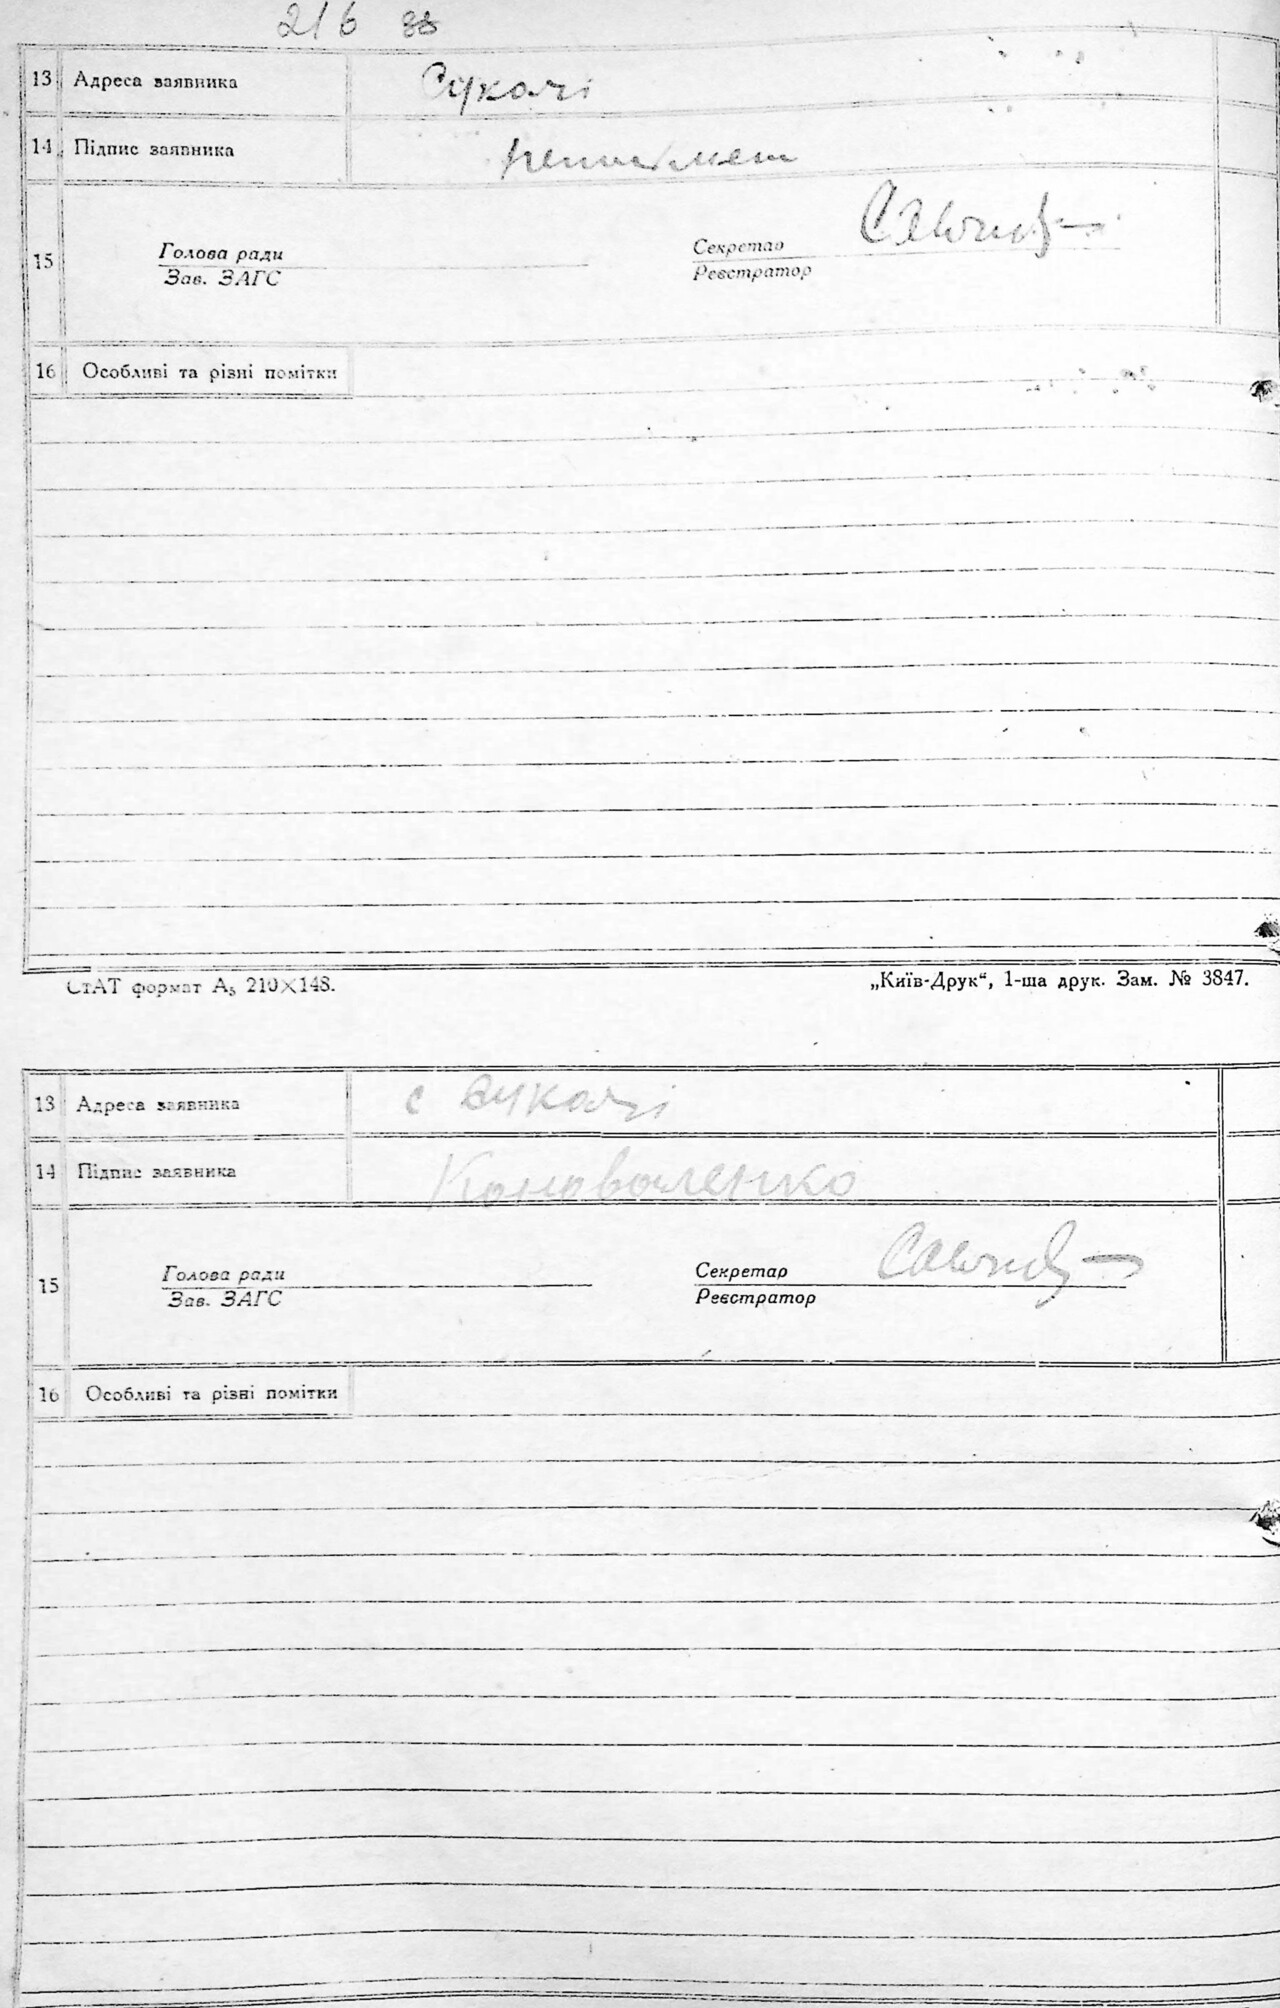 216 зв
13 Адреса заявника Сукачі
14 Підпис заявника неписьмен
15 Голова ради Секретар
Зав. ЗАГС Реєстратор
16 Особливі та різні помітки
СтАТ формат А5 210×148. „Київ-Друк“, 1-ша друк. Зам. № 3847.
13 Адреса заявника с Сукачі
14 Підпис заявника Коноваленко
15 Голова ради Секретар
Зав. ЗАГС Реєстратор
16 Особливі та різні помітки